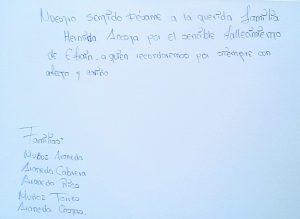 Nuestro sentido Pésame a la querida familia
Hernida Araya por el sensible fallecimiento
de Efraín, a quien recordaremos por siempre con
afecto y cariño
Familias:
Muñoz Araneda
Araneda Cabrera
Araneda Ríos
Muñoz Torres
Araneda Campos